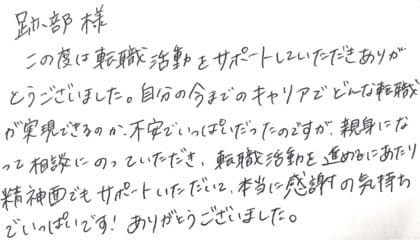 跡部 様
この度は転職活動をサポートしていただきありが
とうございました。自分の今までのキャリアでどんな転職
が実現できるのか、不安でいっぱいだったのですが、親身にな
って相談にのっていただき、転職活動を進めるにあたり
精神面でもサポートいただいて、本当に感謝の気持ち
でいっぱいです！ありがとうございました。